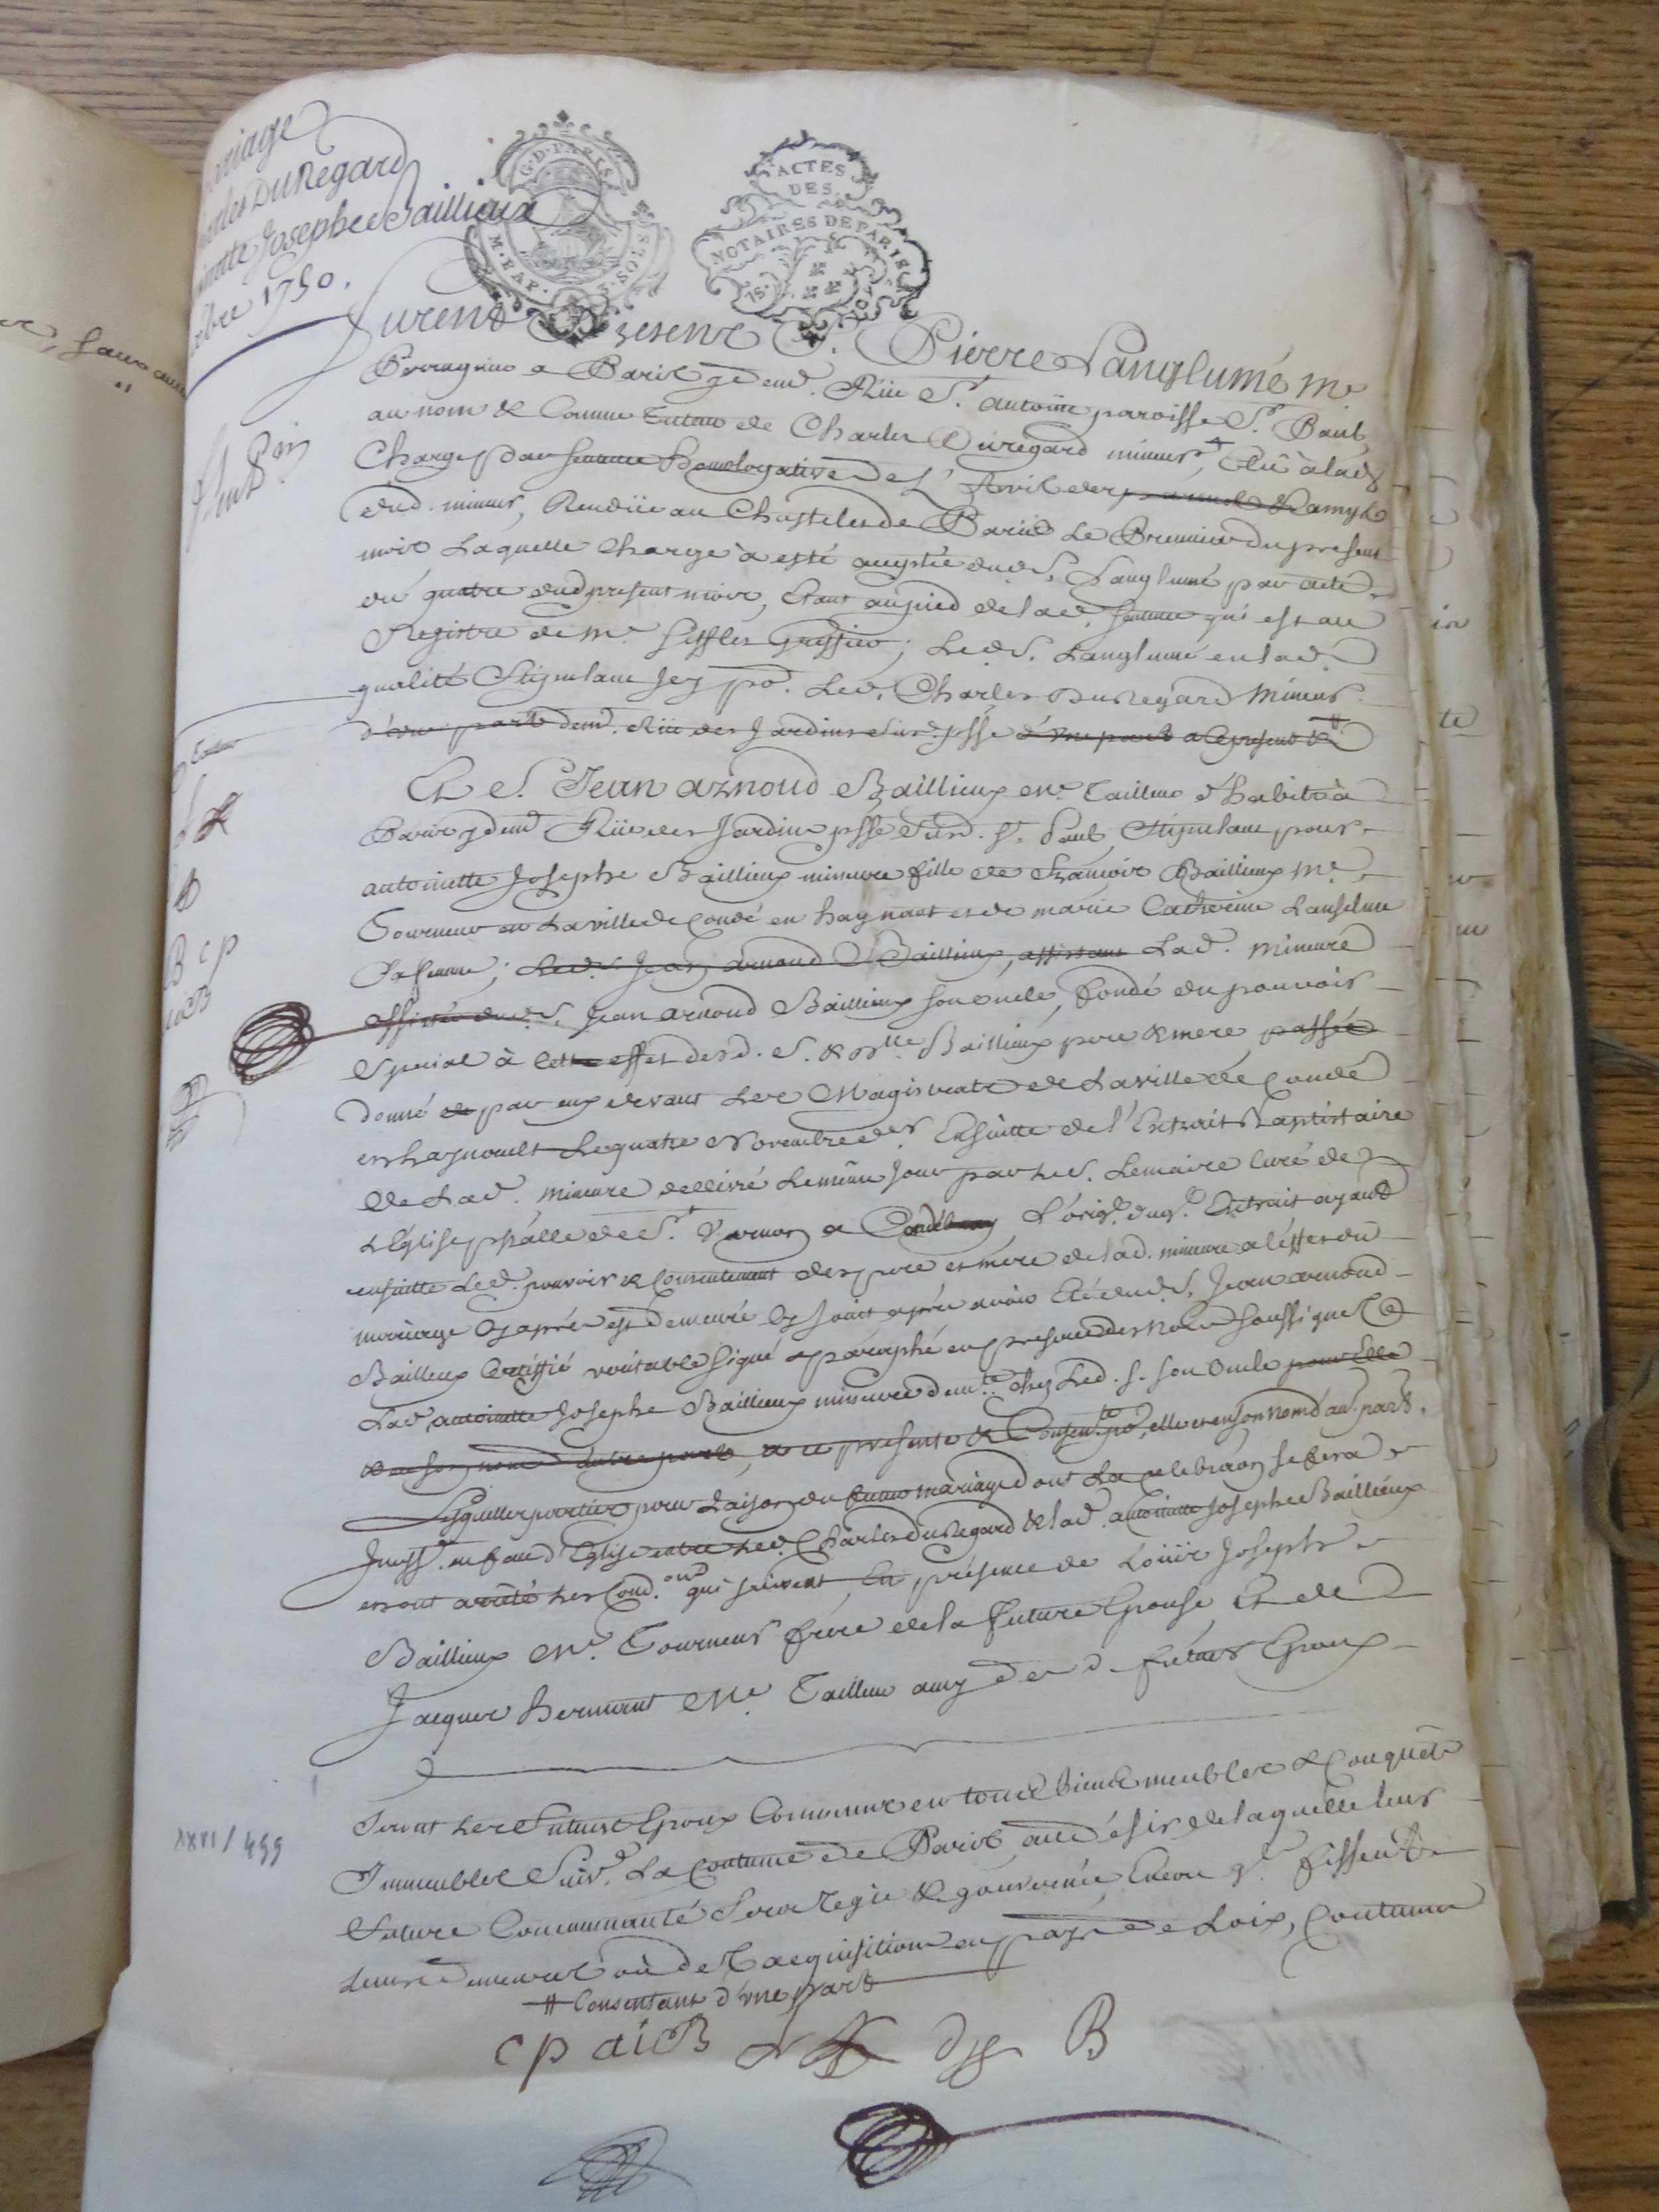 Mariage
Charles Du Regard
Antoinette Josephe Baillieux
1750.
G.D.PARIS
M. PAP.
3. SOLS
ACTES
DES
NOTAIRES DE PARIS
Furent Presens S. Pierre Langlumé Me
Perruquier a Paris y demt. Rüe St. antoine paroisse St. Paul,
au nom & Comme Tuteur de Charles Duregard mineur, Elû à lade
Charge par sentence homologative de L'Avis des parens & amys
dud. mineur, Rendüe au Chastelet de Paris Le Premier du present
mois Laquelle Charge à esté acceptée dud. S. Langlumé par acte
du quatre dud present mois, Etant au pied de lad. sentence qui est au
Registre de Me. Greffier; Led. S. Langlumé en lad.
qualité Stipulant icy po. Led. Charles Du Regard Mineur
d'une part demt. Rüe des Jardins Susd. psse d'une part a ce present &
Et S. Jean arnoud Baillieux Me. Tailleur d'habits à
Paris y demt Rüe des Jardins psse Susd. St. Paul, Stipulant pour
antoinette Josephe Baillieux mineure fille de François Baillieux Me.
Tourneur en La ville de Condé en haynaut et de marie Catherine Lanselme
Sa femme; Led. S. Jean arnoud Baillieux, assistant Lad. Mineure
assistée dud. S. Jean arnoud Baillieux son oncle, fondé du pouvoir
Special à cette effet desd. S. & Dlle. Baillieux pere & mere passée
donné de par eux devant Les Magistrats de La ville de Condé
en haynault Le quatre Novembre der. Ensuitte de l'Extrait Baptistaire
de Lad. mineure dellivré Le même Jour par Le S. Lemaire Curé de
L'Eglise pssalle de St. a Condé L'orig. duq.l Extrait ayant
ensuitte Led. pouvoir & Consentement des pere et mere de lad. mineure a l'effet du
mariage cy aprés est demeuré cy Joint aprés avoir Eté dud. S. Jean arnoud
Baillieux Certiffié veritable signé & paraphé en presence des Notres. soussignez &
Lad. antoinette Josephe Baillieux mineure demte. chez Led. S. son oncle pour Elle
& en son nom d'autre part, a ce presente & Consente. po. elle et en son nom d'au. part.
Lesquelles parties pour Raison du futur mariage dont La celebraon se fera
Incess. en face d'Eglise entre Led. Charles Du Regard & lad. antoinette Josephe Baillieux
ont arrêté les Cond.ons qui suivent En présence de Loüis Joseph
Baillieux Me. Tourneur frere de la future Epouse Et de
Jacques Me. Tailleur amy desd. futurs Epoux
Seront Les Futurs Epoux Communs en tous biens meubles & Conquêts
Immeubles Suivt. La Coutume de Paris au désir de laquelle leur
Future Communauté Sera Regie & gouvernée Encore q. fissent
Leurs demeures où des acquisitions en pays de Loix, Coutumes
# Consentant d'une part
XXVI/499
C P aiCB
B